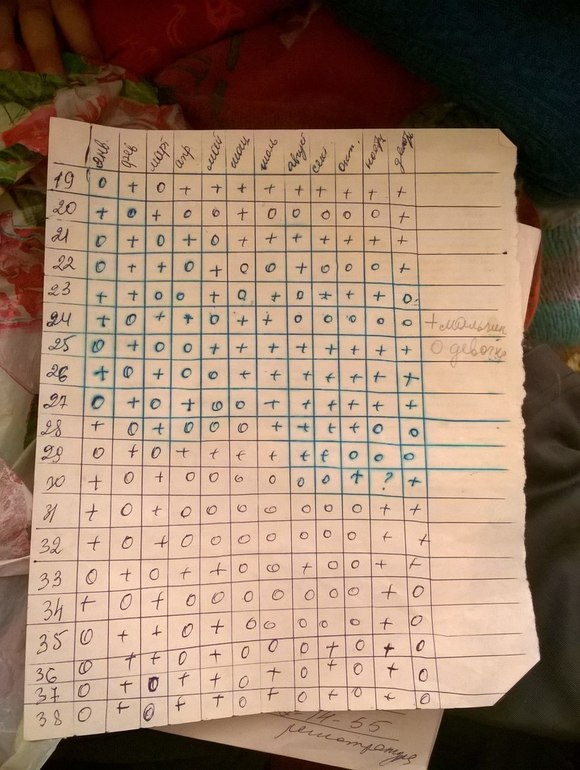 янв. фев март апр май июнь июль август сен. окт. нояб декаб
19 0 + 0 + + + + + + + + +
20 + 0 + 0 0 + 0 0 0 0 0 +
21 0 + 0 + 0 + + + + + + +
22 0 + + 0 + 0 0 + 0 0 0 +
23 + + 0 0 + 0 + 0 + + + 0
24 + 0 + + 0 + + 0 0 0 0 0
+ мальчик
25 0 + 0 0 + + + + + + + +
0 девочка
26 + 0 + 0 0 + + + + + + +
27 0 + 0 + 0 0 + + + + + +
28 + 0 + 0 0 0 + + + + 0 0
29 0 + 0 + + + + + + 0 0 0
30 + 0 + 0 0 0 0 0 0 + ? +
31 + 0 + 0 0 0 0 0 0 0 + +
32 + 0 + 0 0 0 0 0 0 0 + +
33 0 + 0 + + 0 0 + 0 0 + +
34 + 0 + 0 0 0 0 0 0 0 0 0
35 0 + + 0 + 0 0 0 0 0 + 0
36 0 + + 0 + 0 0 0 + 0 + 0
37 0 + 0 + + 0 + 0 + 0 + 0
38 0 + 0 + + 0 + 0 + 0 + 0
55